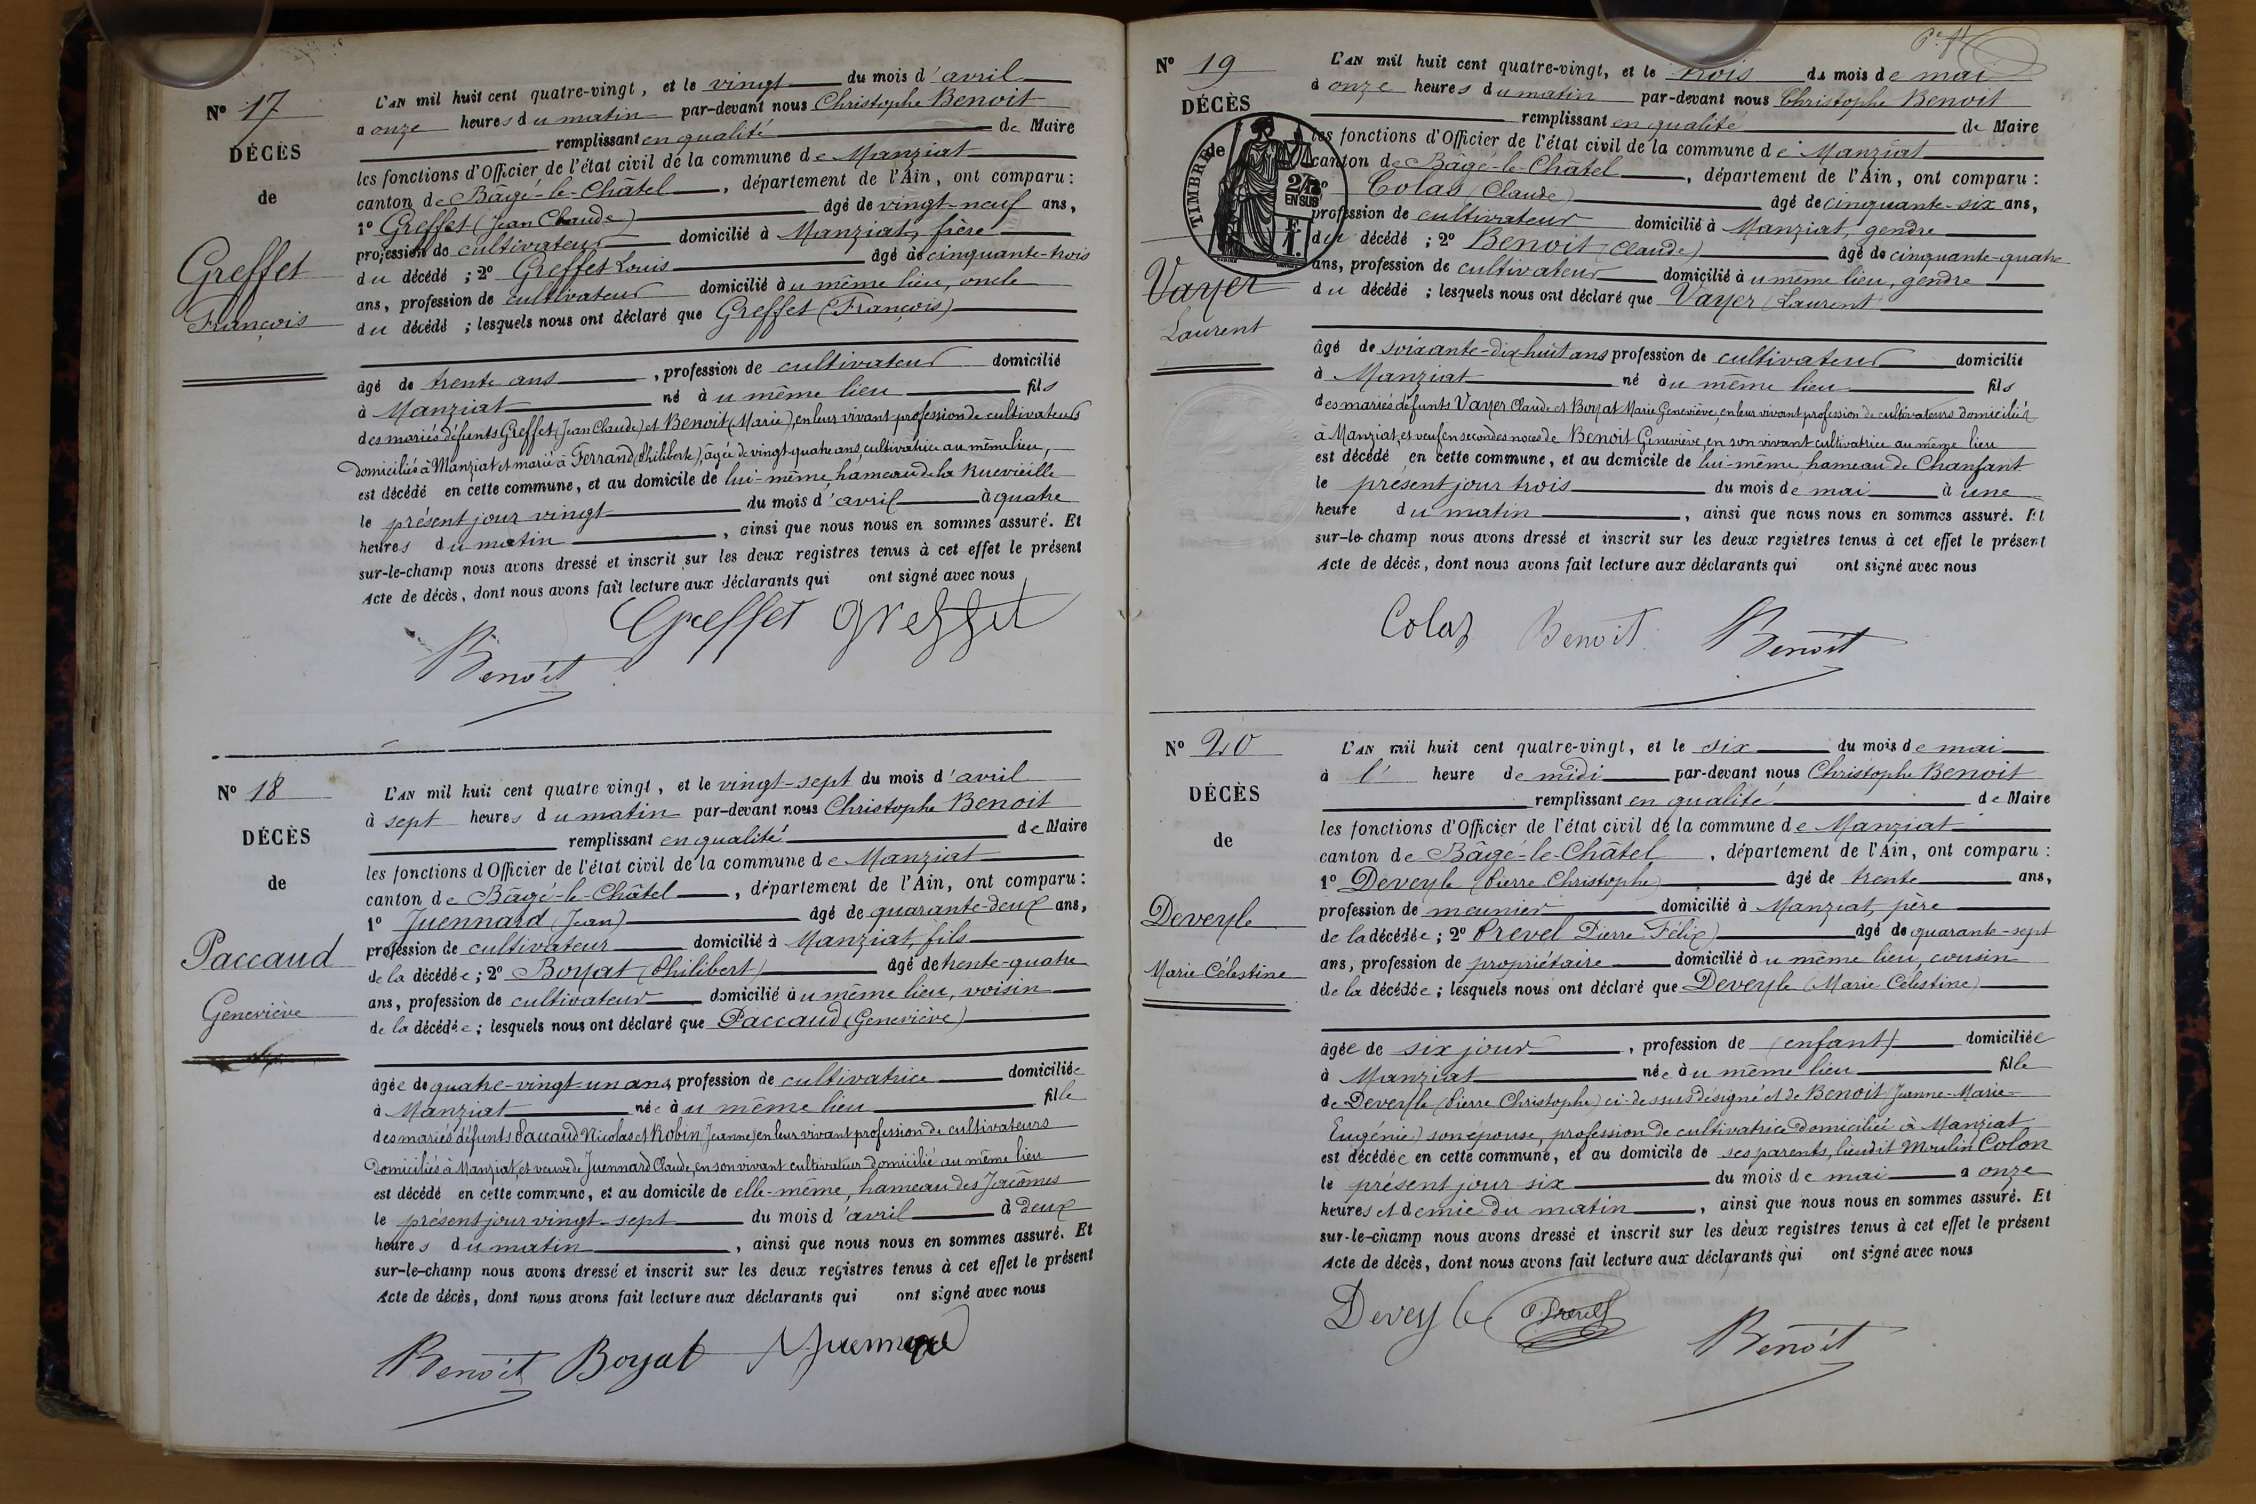 N° 17
DÉCÈS
de
Greffet
François
L'AN mil huit cent quatre-vingt, et le vingt du mois d'avril
à onze heures du matin par-devant nous Christophe Benoit
remplissant en qualité de Maire
les fonctions d'Officier de l'état civil de la commune de Manziat
canton de Bâgé-le-Châtel, département de l'Ain, ont comparu :
1° Greffet (Jean Claude) âgé de vingt-neuf ans,
profession de cultivateur domicilié à Manziat, frère
du décédé ; 2° Greffet Louis âgé de cinquante-trois
ans, profession de cultivateur domicilié à u même lieu, oncle
du décédé ; lesquels nous ont déclaré que Greffet (François)
âgé de trente ans, profession de cultivateur domicilié
à Manziat né à u même lieu fils
des mariés défunts Greffet (Jean Claude) et Benoit (Marie), en leur vivant profession de cultivateurs
domiciliés à Manziat et marié à Ferrand (Philiberte), âgée de vingt-quatre ans, cultivatrice au même lieu,
est décédé en cette commune, et au domicile de lui-même, hameau de la Ruevieille
le présent jour vingt du mois d'avril à quatre
heures du matin, ainsi que nous nous en sommes assuré. Et
sur-le-champ nous avons dressé et inscrit sur les deux registres tenus à cet effet le présent
Acte de décès, dont nous avons fait lecture aux déclarants qui ont signé avec nous
Greffet Greffet
Benoit
N° 18
DÉCÈS
de
Paccaud
Geneviève
L'AN mil huit cent quatre vingt, et le vingt-sept du mois d'avril
à sept heures du matin par-devant nous Christophe Benoit
remplissant en qualité de Maire
les fonctions d'Officier de l'état civil de la commune de Manziat
canton de Bâgé-le-Châtel, département de l'Ain, ont comparu :
1° Juennard (Jean) âgé de quarante-deux ans,
profession de cultivateur domicilié à Manziat, fils
de la décédée ; 2° Boyat (Philibert) âgé de trente-quatre
ans, profession de cultivateur domicilié à u même lieu, voisin
de la décédée ; lesquels nous ont déclaré que Paccaud (Geneviève)
âgée de quatre-vingt-un ans, profession de cultivatrice domiciliée
à Manziat née à u même lieu fille
des mariés défunts Paccaud Nicolas et Robin (Jeanne) en leur vivant profession de cultivateurs
domiciliés à Manziat, et veuve de Juennard Claude, en son vivant cultivateur domicilié au même lieu
est décédé en cette commune, et au domicile de elle-même, hameau des Jacômes
le présent jour vingt-sept du mois d'avril à deux
heures du matin, ainsi que nous nous en sommes assuré. Et
sur-le-champ nous avons dressé et inscrit sur les deux registres tenus à cet effet le présent
Acte de décès, dont nous avons fait lecture aux déclarants qui ont signé avec nous
Benoit Boyat Juennard
N° 19
DÉCÈS
de
TIMBRE
2/10 EN SUS
Vayer
Laurent
L'AN mil huit cent quatre-vingt, et le trois du mois de mai
à onze heures du matin par-devant nous Christophe Benoit
remplissant en qualité de Maire
les fonctions d'Officier de l'état civil de la commune de Manziat
canton de Bâgé-le-Châtel, département de l'Ain, ont comparu :
Colas (Claude) âgé de cinquante-six ans,
profession de cultivateur domicilié à Manziat, gendre
du décédé ; 2° Benoit (Claude) âgé de cinquante-quatre
ans, profession de cultivateur domicilié à u même lieu, gendre
du décédé ; lesquels nous ont déclaré que Vayer (Laurent
âgé de soixante-dix-huit ans profession de cultivateur domicilié
à Manziat né à u même lieu fils
des mariés défunts Vayer Claude et Boyat Marie Geneviève, en leur vivant profession de cultivateurs domiciliés
à Manziat, et veuf en secondes noces de Benoit Geneviève, en son vivant cultivatrice au même lieu
est décédé en cette commune, et au domicile de lui-même, hameau de Chanfant
le présent jour trois du mois de mai à une
heure du matin, ainsi que nous nous en sommes assuré. Et
sur-le-champ nous avons dressé et inscrit sur les deux registres tenus à cet effet le présent
Acte de décès, dont nous avons fait lecture aux déclarants qui ont signé avec nous
Colas Benoit Benoit
N° 20
DÉCÈS
de
Deveyle
Marie Célestine
L'AN mil huit cent quatre-vingt, et le six du mois de mai
à l' heure de midi par-devant nous Christophe Benoit
remplissant en qualité de Maire
les fonctions d'Officier de l'état civil de la commune de Manziat
canton de Bâgé-le-Châtel, département de l'Ain, ont comparu :
1° Deveyle (Pierre Christophe) âgé de trente ans,
profession de meunier domicilié à Manziat, père
de la décédée ; 2° Prevel Pierre Félix) âgé de quarante-sept
ans, profession de propriétaire domicilié à u même lieu, cousin
de la décédée ; lesquels nous ont déclaré que Deveyle (Marie Célestine)
âgée de six jour, profession de (enfant) domiciliée
à Manziat née à u même lieu fille
de Deveyle (Pierre Christophe) ci-dessus désigné et de Benoit (Jeanne-Marie-
Eugénie) son épouse, profession de cultivatrice domiciliée à Manziat
est décédée en cette commune, et au domicile de ses parents, lieu dit Moulin Colon
le présent jour six du mois de mai à onze
heures et demie du matin, ainsi que nous nous en sommes assuré. Et
sur-le-champ nous avons dressé et inscrit sur les deux registres tenus à cet effet le présent
Acte de décès, dont nous avons fait lecture aux déclarants qui ont signé avec nous
Deveyle P. Prevel
Benoit